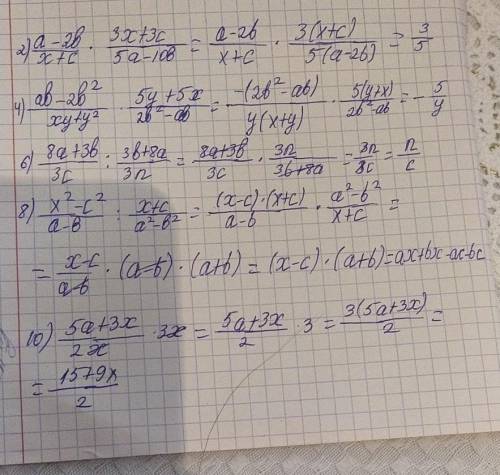 2) (a-2b)/(x+c) · (3x+3c)/(5a-10b) = (a-2b)/(x+c) · 3(x+c)/5(a-2b) = 3/5
4) (ab-2b²)/(xy+y²) · (5y+5x)/(2b²-ab) = -(2b²-ab)/y(x+y) · 5(y+x)/(2b²-ab) = -5/y
6) (8a+3b)/3c : (3b+8a)/3n = (8a+3b)/3c · 3n/(3b+8a) = 3n/3c = n/c
8) (x²-c²)/(a-b) : (x+c)/(a²-b²) = (x-c)·(x+c)/(a-b) · (a²-b²)/(x+c) =
= (x-c)/(a-b) · (a-b) · (a+b) = (x-c) · (a+b) = ax+bx-ac-bc
10) (5a+3x)/2x · 3x = (5a+3x)/2 · 3 = 3(5a+3x)/2 =
= (15+9x)/2